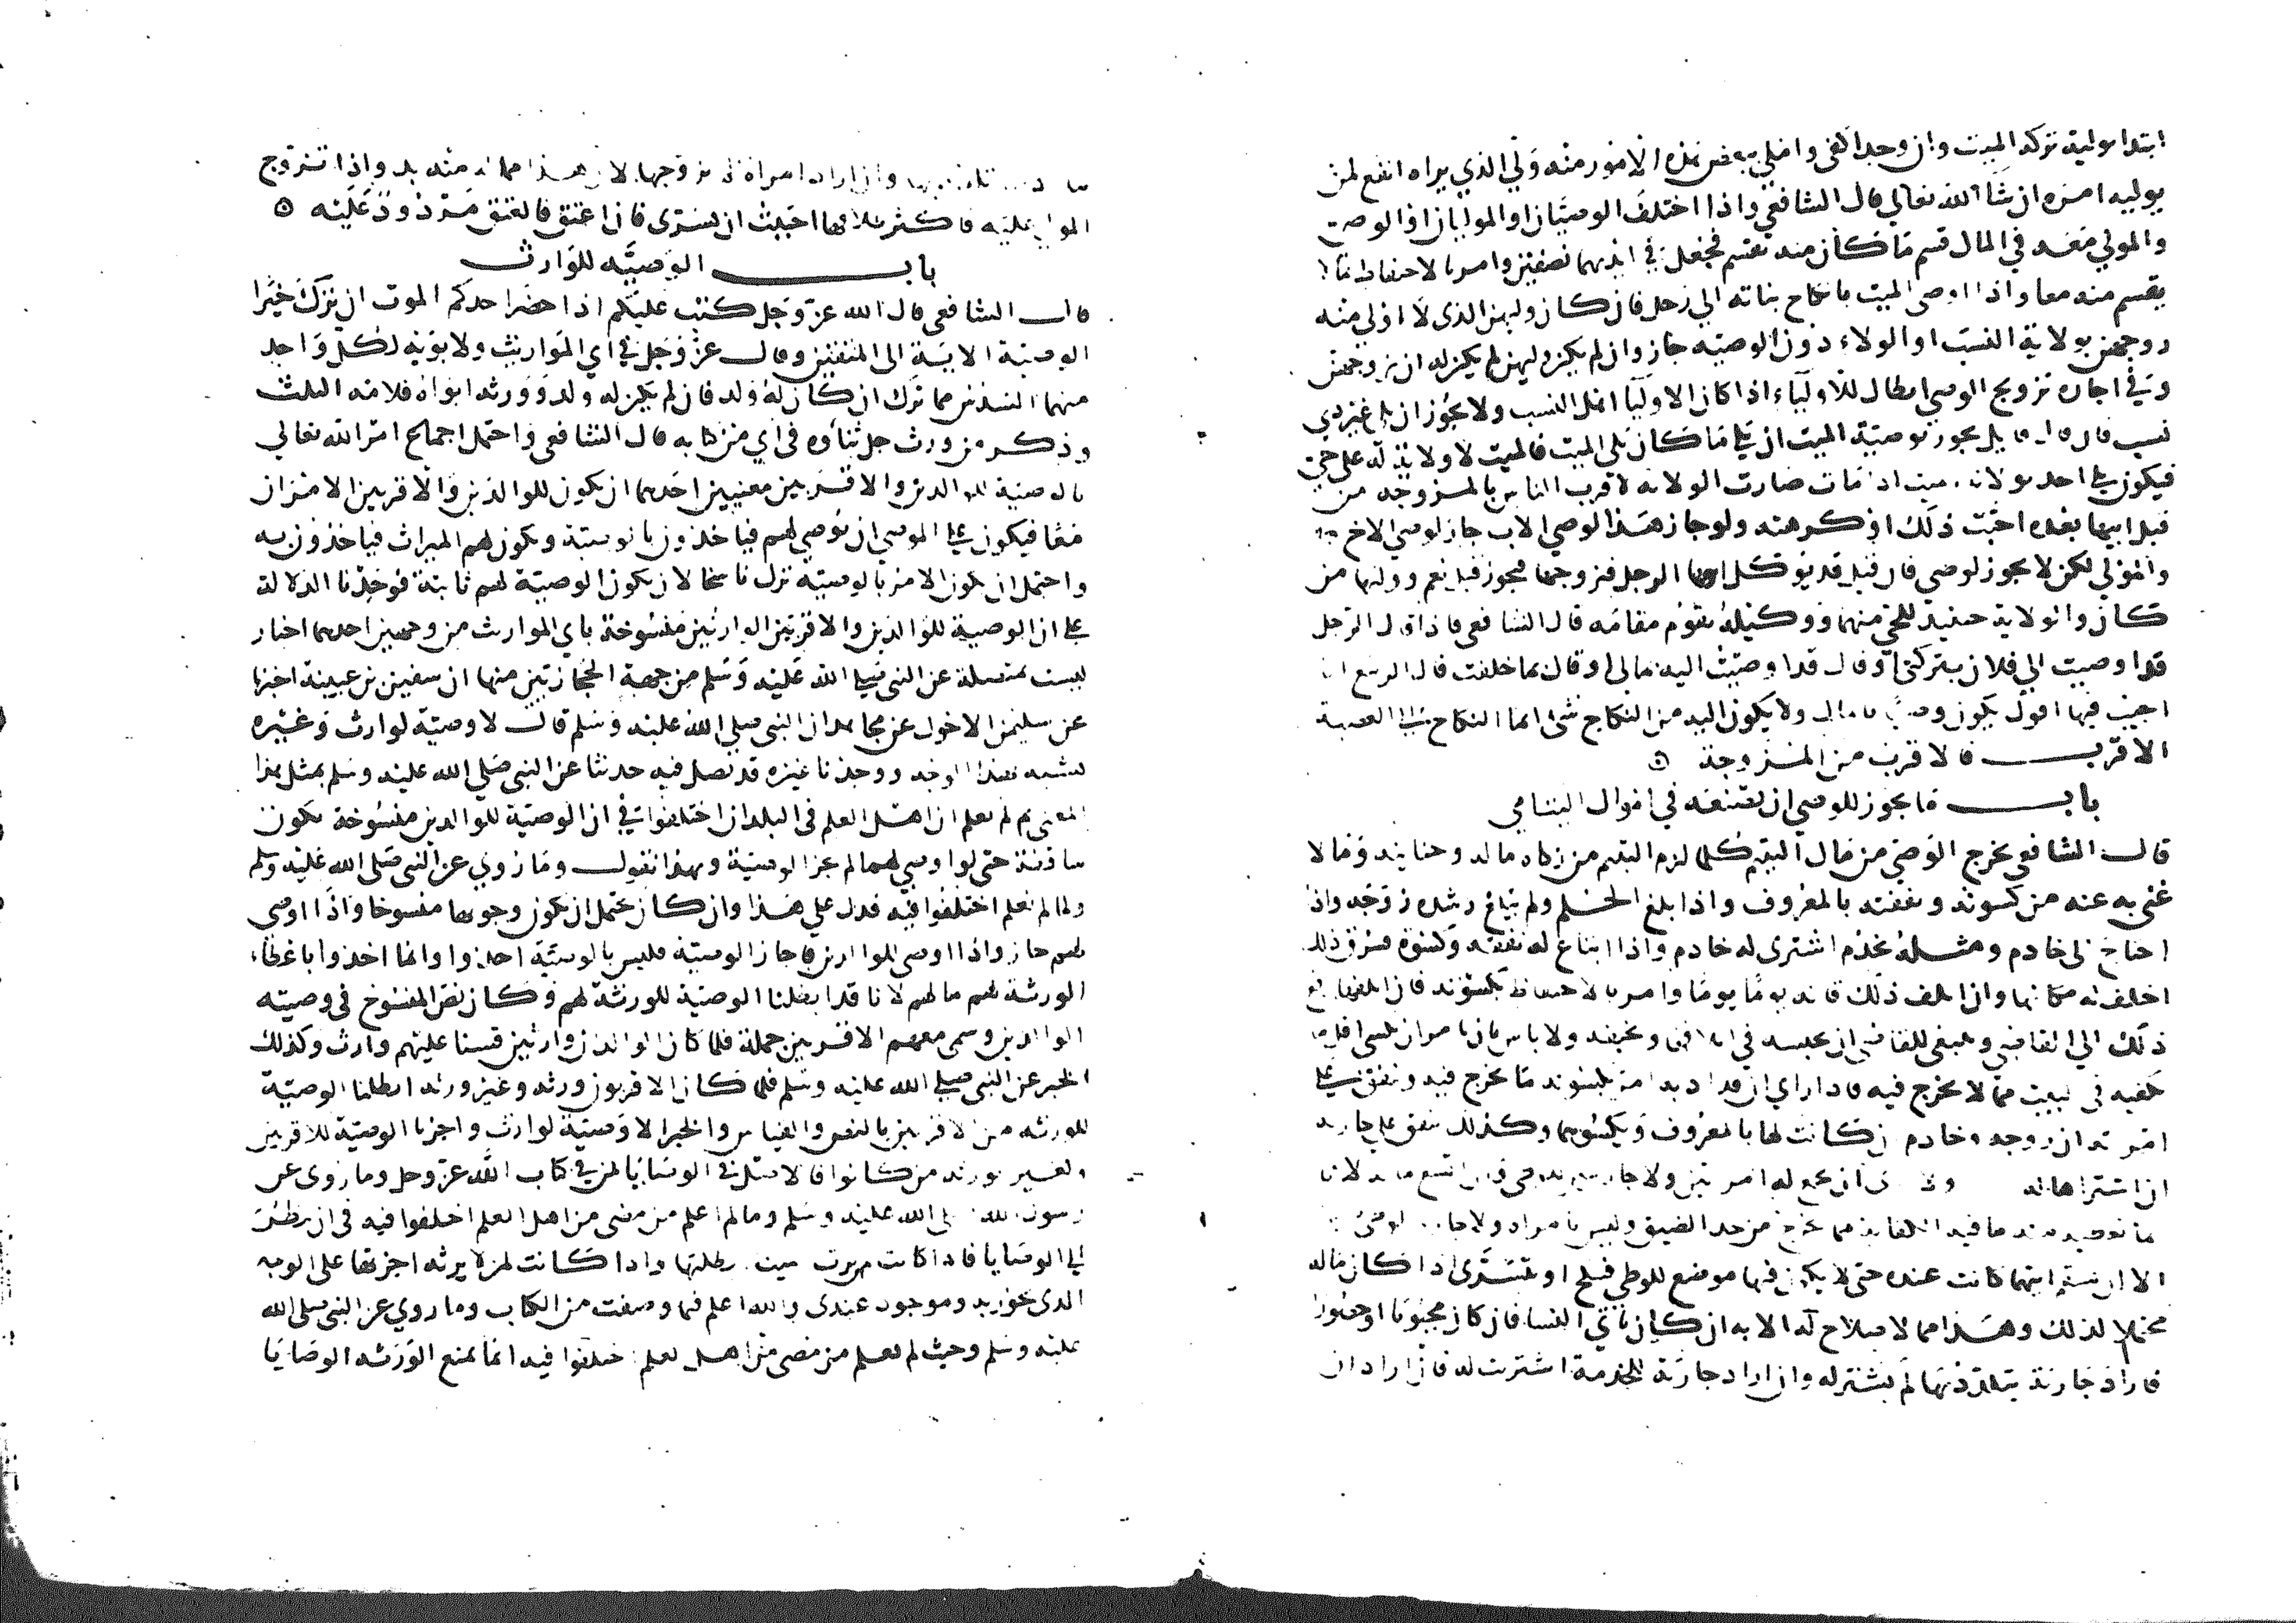 ابتدا بولية تركه الميت وان وجد اكفى واملى ببعض هذه الامور منه ولي الذي يراه انفع لمن
يوليه امره ان شا الله تعالي قال الشافعي واذا اختلف الوصيان او الموليان او الوصي
والمولي معه في المال قسم ما كان منه يقسم فجعل في ايديهما نصفين وامرا بالاحتفاظ بما لا
يقسم منه معا واذا اوصى الميت بانكاح بناته الي رجل فان كان وليهن الذي لا اولي منه
زوجهن بولاية النسب او الولاء دون الوصيه جاز وان لم يكن وليهن لم يكن له ان يزوجهن
وفي اجازه تزويج الوصي ابطال للاولياء اذا كان الاوليا اهل النسب ولا يجوز ان يلي غير ذي
نسب فان قال قايل يجوز بوصية الميت ان يلي ما كان يلي الميت فالميت لا ولاية له على حي
فيكون يلي احد بولاية ميت اذا مات صارت الولاية لاقرب الناس بالمزوجه من
قبل ابيها بعده احبت ذلك او كرهته ولو جاز هذا لوصي الاب جاز لوصي الاخ
والمولي لكن لا يجوز لوصي فان قيل قد يوكل ابوها الرجل فيزوجها فيجوز قيل نعم ووليها من
كان والولاية حينيذ للحي منهما ووكيله يقوم مقامه قال الشافعي فاذا قال الرجل
قد اوصيت الي فلان بتركتي او قال قد اوصيت اليه بمالي او قال بما خلفت قال الربيع انا
اجيب فيها اقول يكون وصيا بالمال ولا يكون اليه من النكاح شئ انما النكاح الي العصبة
الاقرب فالاقرب من المزوجة ه
باب ما يجوز للوصي ان يصنعه في اموال اليتامي
قال الشافعي يخرج الوصي من مال اليتيم كلما لزم اليتيم من زكاه ماله وجنايته وما لا
غني به عنه من كسوته ونفقته بالمعروف واذا بلغ الحلم ولم يبلغ رشده زوجه واذا
احتاج الى خادم ومثله يخدم اشترى له خادم واذا ابتاع له نفقة وكسوة فسرق ذلك
اخلف له مكانها وان اتلف ذلك قاته يوما يوما وامر بالاحتفاظ بكسوته فان اتلفها رفع
ذلك الي القاضي وينبغي للقاضي ان يحبسه في اتلافها ويخيفه ولا باس بان يامر ان يكسي اقل ما
يكفيه في البيت مما لا يخرج فيه فاذا راي ان قد ادبه امر بكسوته ما يخرج فيه وينفق على
امراته ان زوجه وخادم ان كانت لها بالمعروف ويكسوهما وكذلك ينفق على جارية
ان اشتراها له ولا ان يجمع له امراتين ولا جاريتين وان اتسع ماله لانا
انما نعطيه منه ما فيه الكفاية مما يخرج من حد الضيق وليس بامراه ولا جارية لوطئ
الا ان تسقم ايتهما كانت عنده حتى لا يكون فيها موضع للوطي فينكح او يتسرى اذا كان ماله
محتملا لذلك وهذا مما لا صلاح له الا به ان كان ياتي النسا فان كان مجبوبا او حصورا
فاراد جارية يتلذذ بها لم يشتر له وان اراد جارية للخدمة اشتريت له فان اراد ان
يتلذذ بها وان اراد امراة لم يزوجها لان هذا مما له منه بد واذا تزوج
المولى عليه فاكثر طلاقها احببت ان يتسرى فان اعتق فالعتق مردود عليه ه
باب الوصيه للوارث
قال الشافعي قال الله عز وجل كتب عليكم اذا حضر احدكم الموت ان ترك خيرا
الوصية الاية الى المتقين وقال عز وجل في آي المواريث ولابويه لكل واحد
منهما السدس مما ترك ان كان له ولد فان لم يكن له ولد وورثه ابواه فلامه الثلث
وذكر من ورث جل ثناؤه في آي من كتابه قال الشافعي واحتمل اجماع امر الله تعالي
بالوصية للوالدين والاقربين معنيين احدهما ان يكون للوالدين والاقربين الامران
معا فيكون على الموصي ان يوصي لهم فياخذون بالوصية ويكون لهم الميراث فياخذون به
واحتمل ان يكون الامر بالوصية نزل ناسخا لان يكون الوصية لهم ثابتة فوجدنا الدلالة
على ان الوصية للوالدين والاقربين الوارثين منسوخة بآي المواريث من وجهين احدهما اخبار
ليست بمتصلة عن النبي صلي الله عليه وسلم من جهة الحجازيين منها ان سفين بن عيينة اخبرنا
عن سليمن الاحول عن مجاهد ان النبي صلي الله عليه وسلم قال لا وصية لوارث وغيره
يثبته بهذا الوجه ووجدنا غيره قد تصل فيه حديثا عن النبي صلي الله عليه وسلم بمثل هذا
المعنى ثم لم نعلم ان اهل العلم في البلدان اختلفوا في ان الوصية للوالدين منسوخة تكون
ساقطة حتى لو اوصي لهما لم يجز الوصية وبهذا نقول وما روي عن النبي صلى الله عليه وسلم
ولما لم نعلم اختلفوا فيه فدل على هذا وان كان يحتمل ان يكون وجوبها منسوخا واذا اوصي
لهم جاز واذا اوصى للوالدين فاجاز الوصية فليس بالوصية اخذوا وانما اخذوا باعطاء
الورثة لهم ما لهم لانا قد ابطلنا الوصية للورثة لهم وكان نص المنسوخ في وصيته
الوالدين وسمي معهم الاقربين جملة فلما كان الوالدان وارثين قسنا عليهم وارث وكذلك
الخبر عن النبي صلي الله عليه وسلم فلما كان الاقربون ورثه وغير ورثه ابطلنا الوصية
للورثه من الاقربين بالنص والقياس والخبر الا لا وصية لوارث واجزنا الوصية للاقربين
ولغير الورثه من كانوا فالاصل في الوصايا لمن في كتاب الله عز وجل وما روى عن
رسول الله صلي الله عليه وسلم وما لم اعلم من مضى من اهل العلم اختلفوا فيه في ان ينظر
الي الوصايا فاذا كانت لمن يرث الميت ابطلتها واذا كانت لمن لا يرثه اجزتها على الوجه
الذي تجوز به وموجود عندي والله اعلم فيما وصفت من الكتاب وما روي عن النبي صلى الله
عليه وسلم وحيث لم نعلم من مضى من اهل العلم اختلفوا فيه انما يمنع الورثه الوصايا